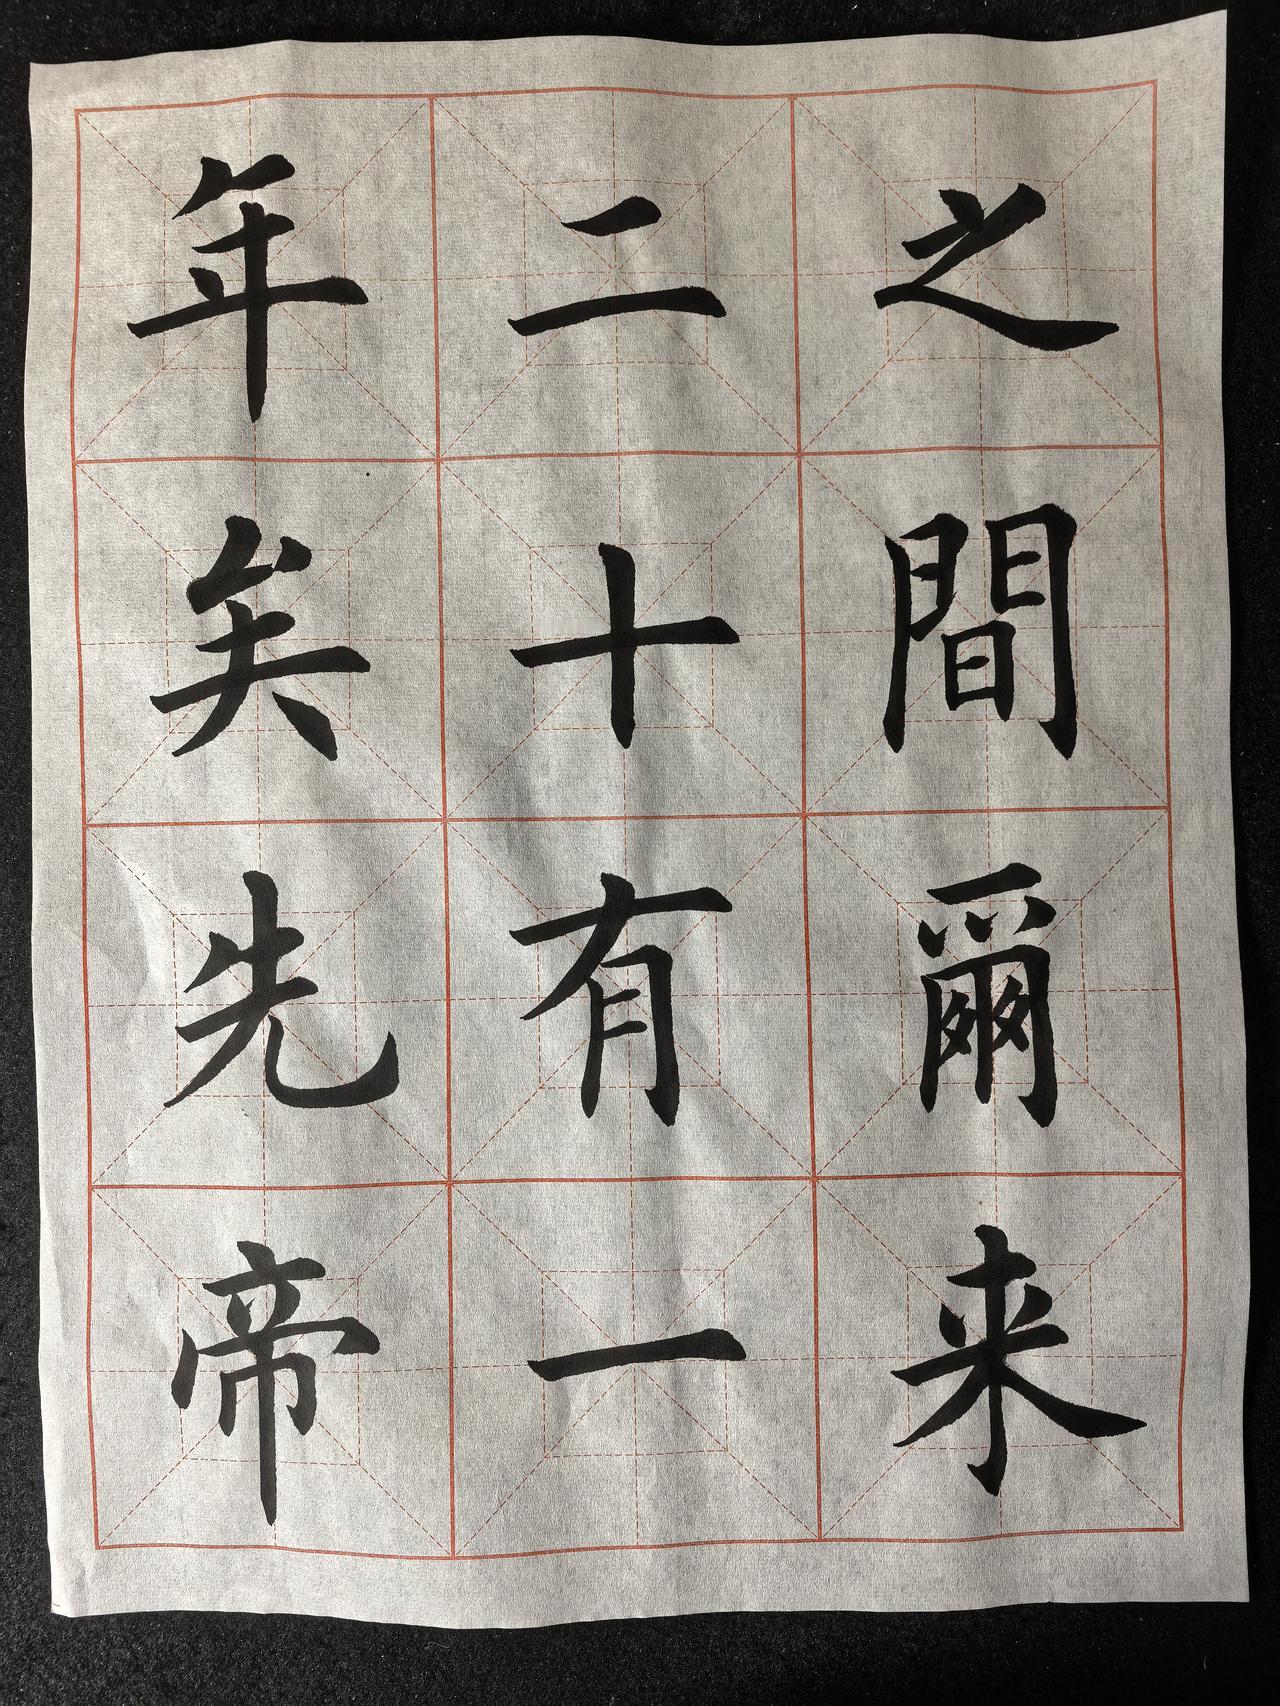 之間爾来
二十有一
年矣先帝